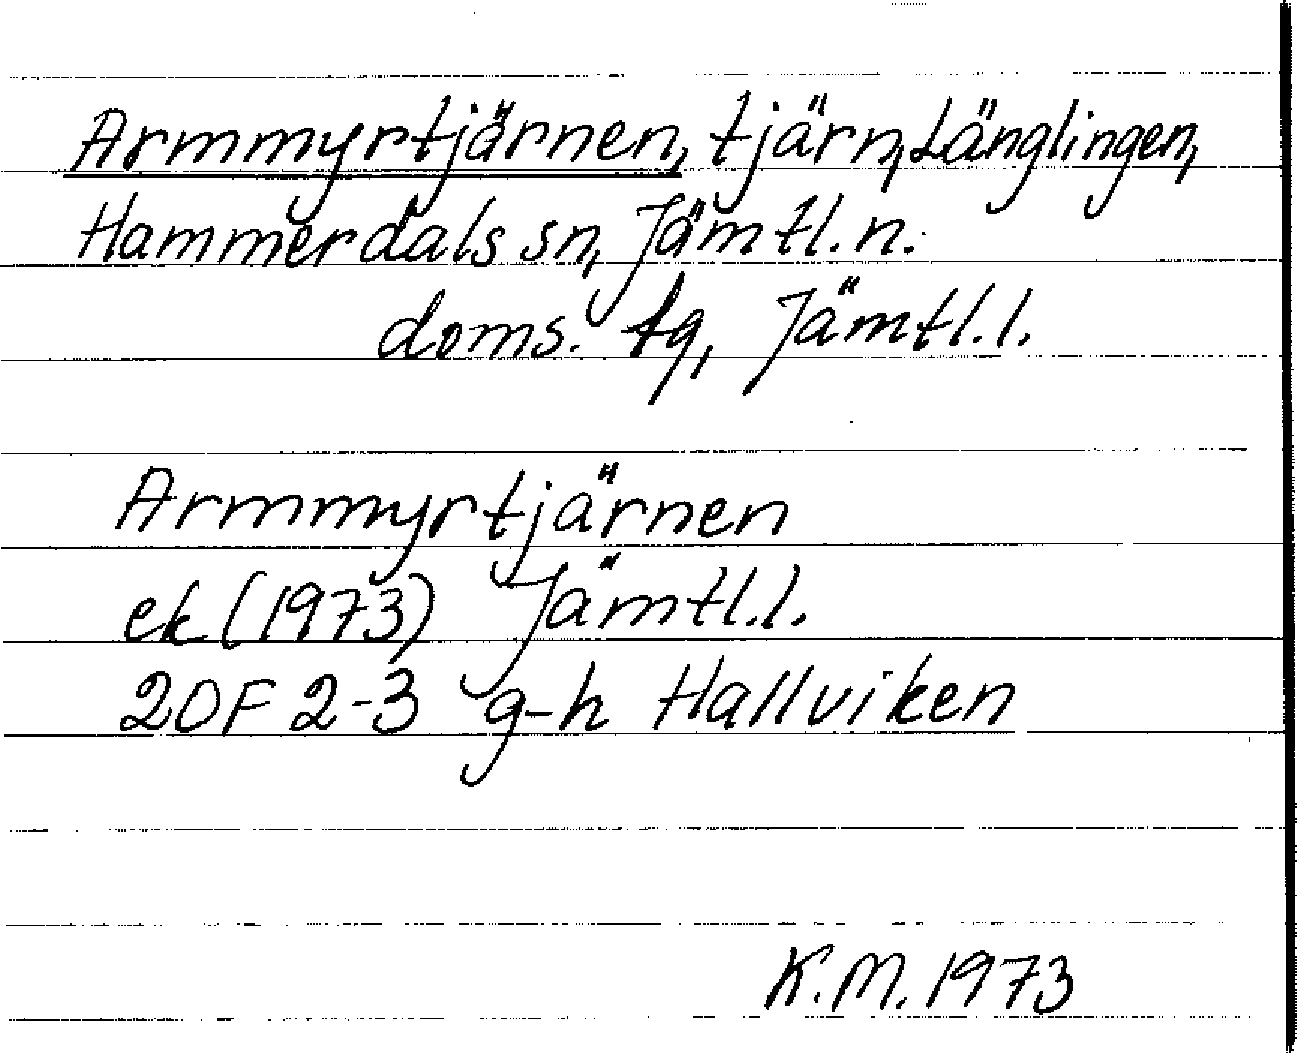 Armmyrtjärnen, tjärn, Länglingen,
Hammerdals sn, Jämtl. n.
doms. tg, Jämtl. l.
Armmyrtjärnen
ek (1973) Jämtl. l.
20F 2-3 g-h Hallviken
K.M. 1973